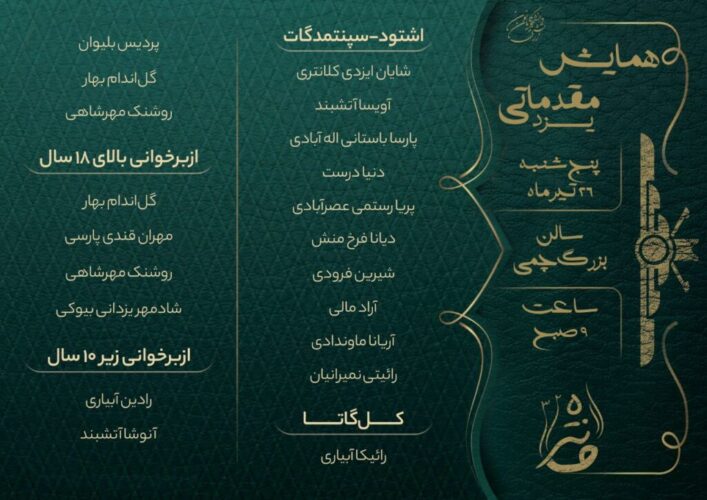 همایش
مقدماتی
یزد
پنج شنبه
۲۶ تیر ماه
سالن
بزرگ چمی
ساعت
۹ صبح
مانتره
اشتود-سپنتمدگات
شایان ایزدی کلانتری
آویسا آتشبند
پارسا باستانی اله آبادی
دنیا درست
پریا رستمی عصرآبادی
دیانا فرخ منش
شیرین فرودی
آراد مالی
آریانا ماوندادی
رائیتی نمیرانیان
کل گاتا
رائیکا آبیاری
پردیس بلیوان
گل‌اندام بهار
روشنک مهرشاهی
ازبرخوانی بالای ۱۸ سال
گل‌اندام بهار
مهران قندی پارسی
روشنک مهرشاهی
شادمهر یزدانی بیوکی
ازبرخوانی زیر ۱۰ سال
رادین آبیاری
آنوشا آتشبند